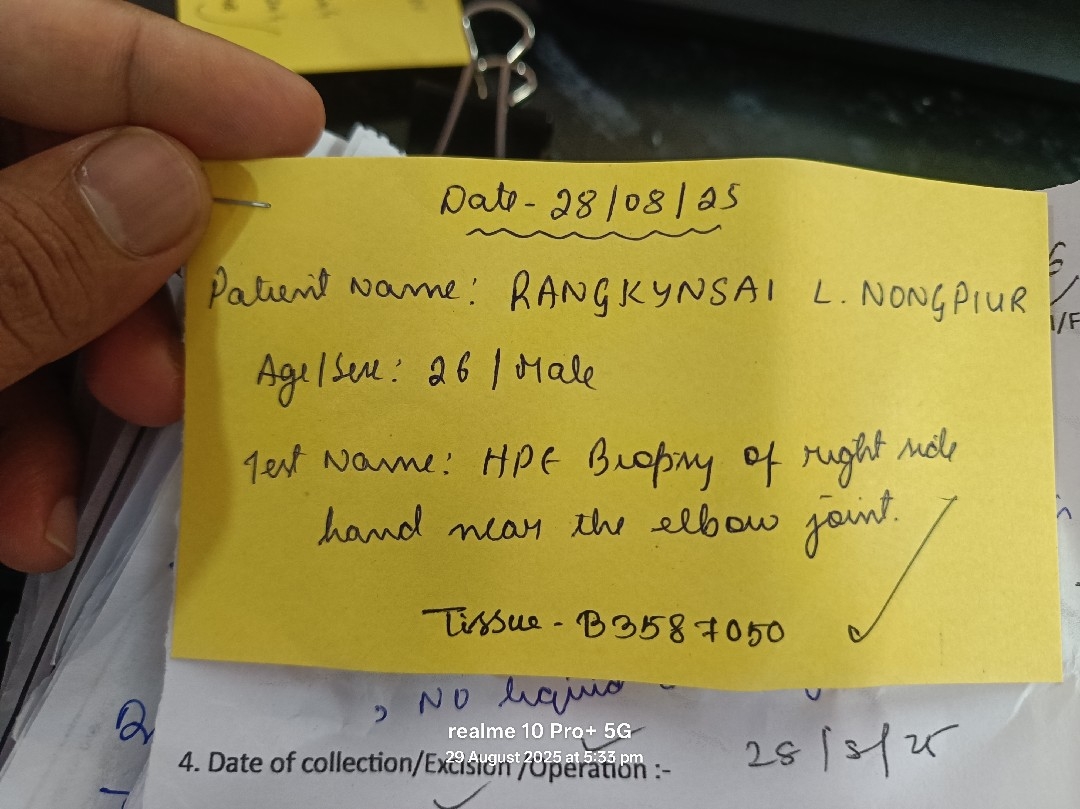 Date - 28/08/25
Patient Name: RANGKYNSAI L. NONGPIUR
Age/Sex: 26 / Male
Test Name: HPE Biopsy of right side
hand near the elbow joint.
Tissue - B3587050
, NO liquid
realme 10 Pro+ 5G
29 August 2025 at 5:33 pm
4. Date of collection/Excision /Operation :- 28/8/25